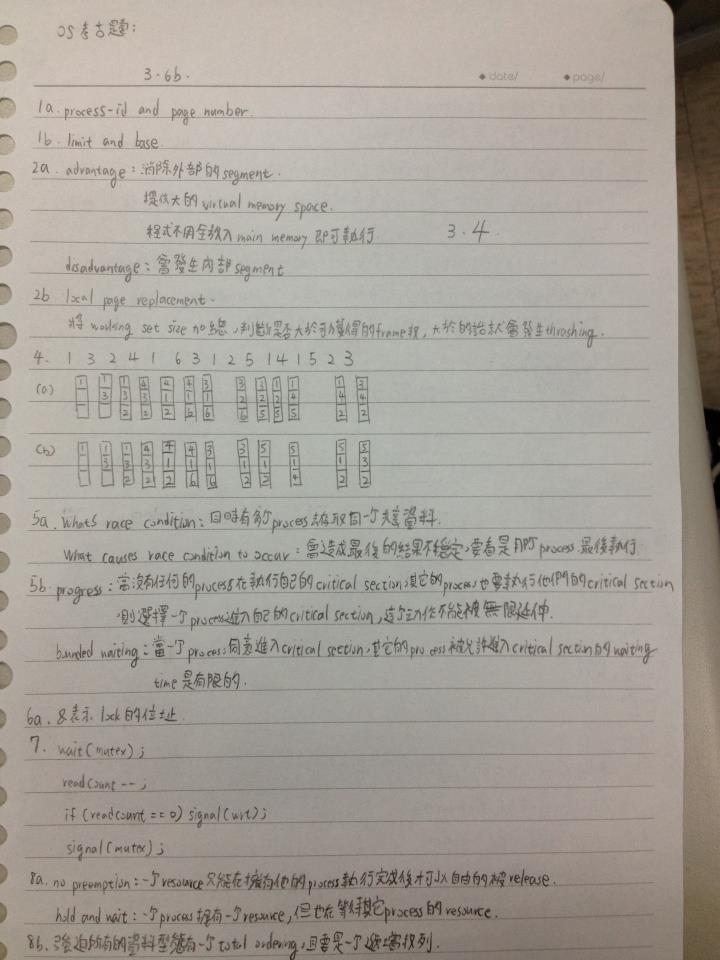 OS考古題:
3.6b.
◆ date/ ◆ page/
1a. process-id and page number.
1b. limit and base.
2a. advantage: 消除外部的segment.
提供大的virtual memory space.
程式不用全放入main memory 即可執行. 3.4.
disadvantage: 會發生內部segment
2b. local page replacement.
將 working set size no 總, 判斷是否大於可獲得的frame數, 大於的話就會發生thrashing.
4. 1 3 2 4 1 6 3 1 2 5 1 4 1 5 2 3
(a) 1 1 1 4 4 4 3 3 2 1 1 1 3
3 3 3 1 1 1 2 2 2 4 4 4
2 2 2 6 6 6 5 5 5 2 2
(b) 1 1 1 4 4 4 3 3 5 5 5 5
3 3 3 1 1 1 1 1 1 1 3
2 2 2 6 6 2 2 4 2 2
5a. What's race condition: 同時有多個process去存取同一个共享資料.
What causes race condition to occur: 會造成最後的結果不穩定, 要看是那个process最後執行.
5b. progress: 當沒有任何的process在執行自己的critical section, 其它的process也要執行他們的critical section
則選擇一个process進入自己的critical section, 這个動作不能被無限延伸.
bounded waiting: 當一个process同意進入critical section, 其它的process被允許進入critical section的waiting
time是有限的.
6a. &表示 lock的位址.
7. wait(mutex);
readcount--;
if (readcount == 0) signal(wrt);
signal(mutex);
8a. no preemption: 一个resource只能在擁有他的process執行完成後才可以自由的被release.
hold and wait: 一个process擁有一个resource, 但也在等待其它process的resource.
8b. 強迫所有的資料型態有一个total ordering, 且要是一个遞增排列.